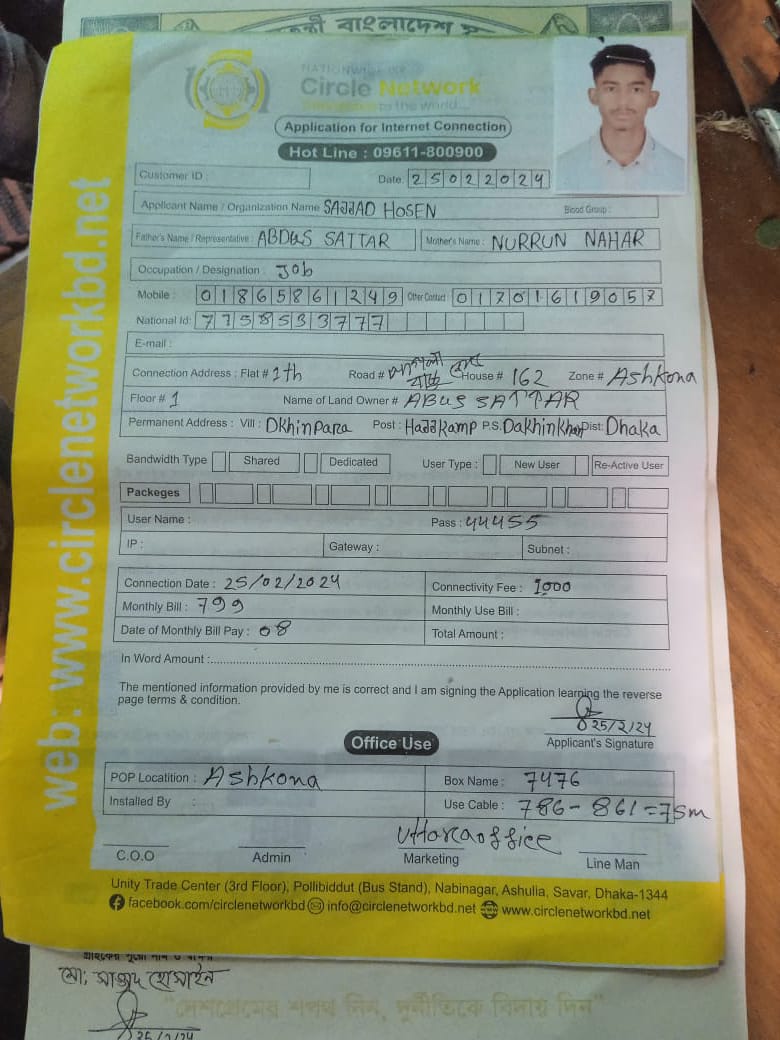 বাংলাদেশ
NATIONWIDE ISP
Circle Network
to the world...
Application for Internet Connection
Hot Line : 09611-800900
Customer ID :
Date. 25022024
Applicant Name / Organization Name SAJJAD HOSEN Blood Group :
Father's Name / Representative : ABDUS SATTAR Mother's Name : NURRUN NAHAR
Occupation / Designation : Job
Mobile : 01865861249 Other Contact : 01701619057
National Id: 7758533777
E-mail :
Connection Address : Flat # 1th Road # House # 162 Zone # Ashkona
Floor # 1 Name of Land Owner # ABUS SATTAR
Permanent Address : Vill : DkhinPara Post : HaddKamp P.S. DakhinKhan Dist: Dhaka
Bandwidth Type Shared Dedicated User Type : New User Re-Active User
Packeges
User Name : Pass : 44455
IP : Gateway : Subnet :
Connection Date : 25/02/2024 Connectivity Fee : 1000
Monthly Bill : 799 Monthly Use Bill :
Date of Monthly Bill Pay : 08 Total Amount :
In Word Amount :
The mentioned information provided by me is correct and I am signing the Application learning the reverse
page terms & condition.
25/2/24
Applicant's Signature
Office Use
POP Locatition : Ashkona Box Name : 7476
Installed By : Use Cable : 786-861=75m
Uttora office
C.O.O Admin Marketing Line Man
Unity Trade Center (3rd Floor), Pollibiddut (Bus Stand), Nabinagar, Ashulla, Savar, Dhaka-1344
facebook.com/circlenetworkbd info@circlenetworkbd.net www.circlenetworkbd.net
web: www.circlenetworkbd.net
মো: সাজ্জাদ হোসাইন
"দেশপ্রেমের শপথ নিন, দুর্নীতিকে বিদায় দিন"
25/2/24